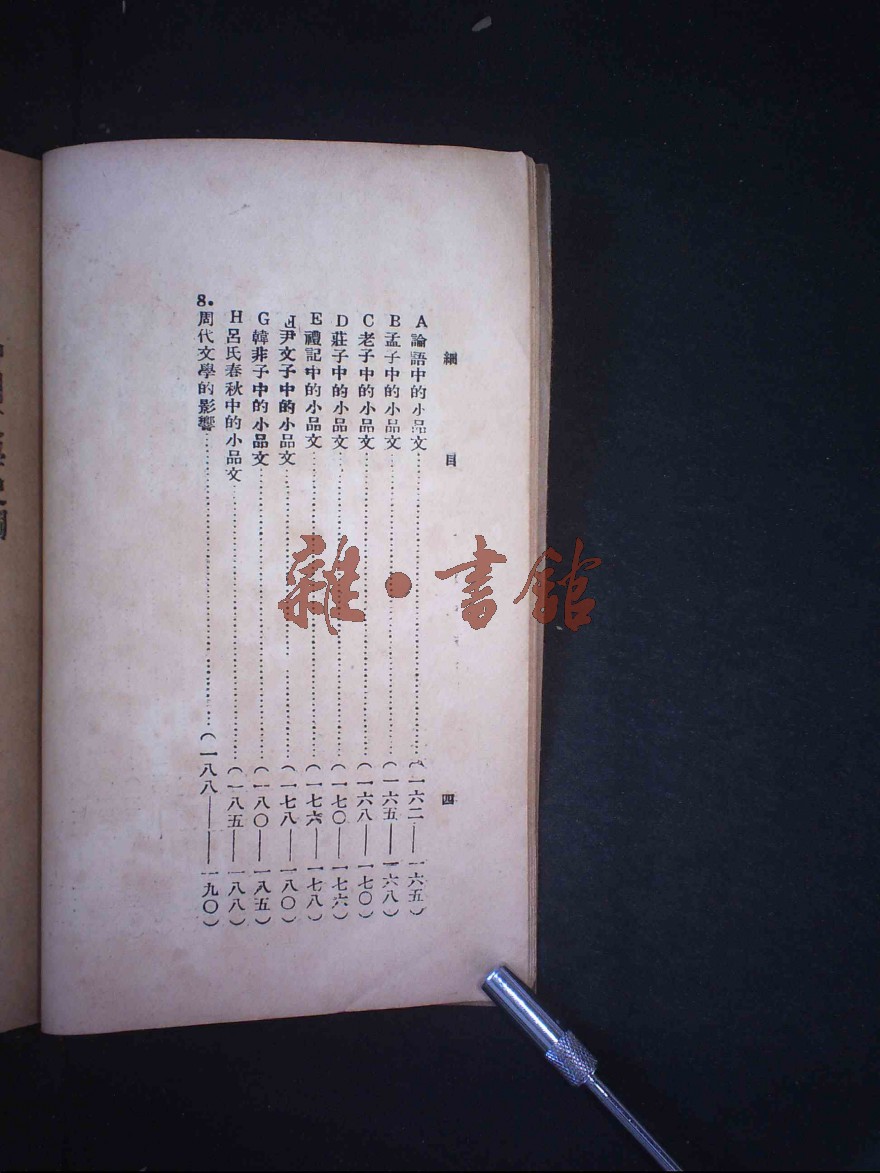 細目 四
A 論語中的小品文……(一六二——一六五)
B 孟子中的小品文……(一六五——一六八)
C 老子中的小品文……(一六八——一七〇)
D 莊子中的小品文……(一七〇——一七六)
E 禮記中的小品文……(一七六——一七八)
尹文子中的小品文……(一七八——一八〇)
G 韓非子中的小品文……(一八〇——一八五)
H 呂氏春秋中的小品文……(一八五——一八八)
8. 周代文學的影響……(一八八——一九〇)
雜·書館